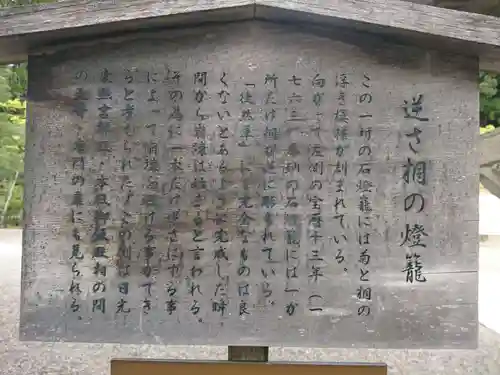 逆さ桐の燈籠
この一対の石燈籠には菊と桐の
浮き模様が刻まれている。
向かって左側の宝暦十三年(一
七六三)奉納の石燈籠には一か
所だけ桐が逆に彫られている。
「徒然草」に完全なものは良
くないとあるように完成した瞬
間から崩壊は始まると言われる。
その為に一本だけ逆さにする事
によって崩壊を避ける事ができ
ると考えられた。この例は日光
東照宮の本殿御殿の間
の